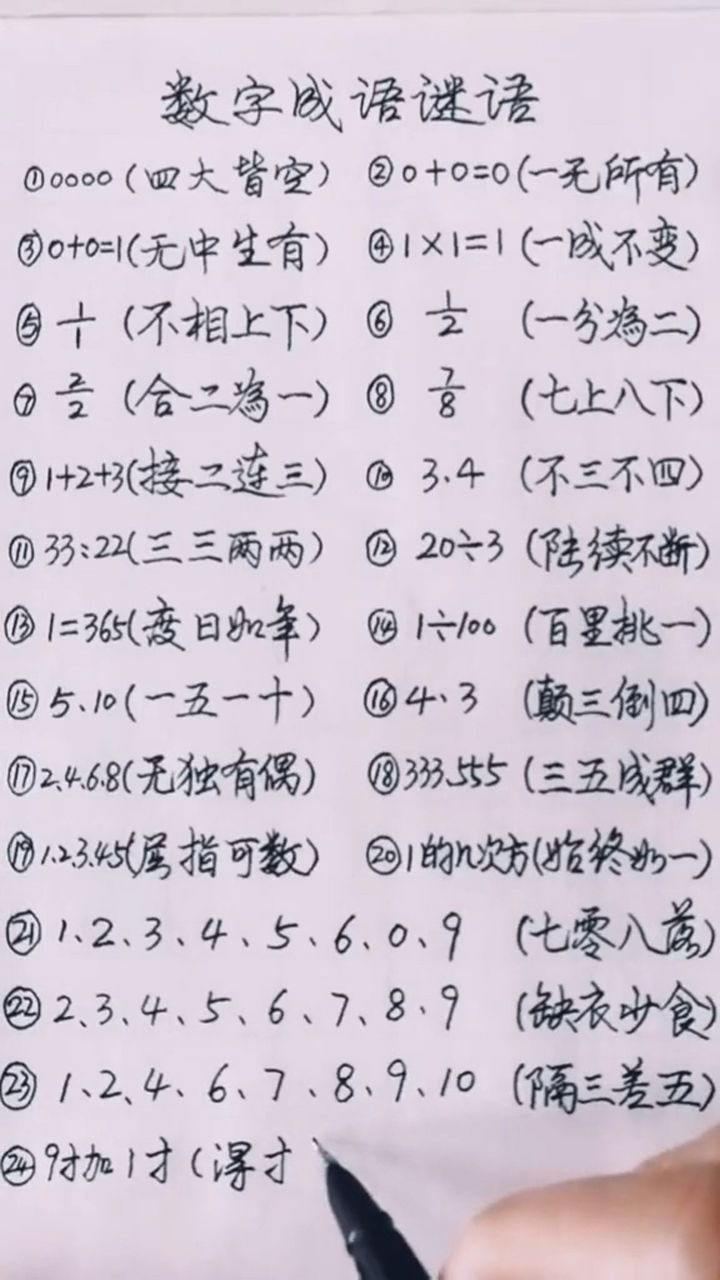 数字成语谜语
①0000(四大皆空) ②0+0=0(一无所有)
③0+0=1(无中生有) ④1×1=1(一成不变)
⑤1/1(不相上下) ⑥1/2(一分為二)
⑦2/2(合二為一) ⑧7/8(七上八下)
⑨1+2+3(接二连三) ⑩3.4(不三不四)
⑪33:22(三三两两) ⑫20÷3(陆续不断)
⑬1=365(度日如年) ⑭1÷100(百里挑一)
⑮5、10(一五一十) ⑯4、3(颠三倒四)
⑰2.4.6.8(无独有偶) ⑱333.555(三五成群)
⑲1.2.3.4.5(屈指可数) ⑳1的n次方(始终如一)
㉑1、2、3、4、5、6、0、9(七零八落)
㉒2、3、4、5、6、7、8、9(缺衣少食)
㉓1、2、4、6、7、8、9、10(隔三差五)
㉔9寸加1寸(得寸